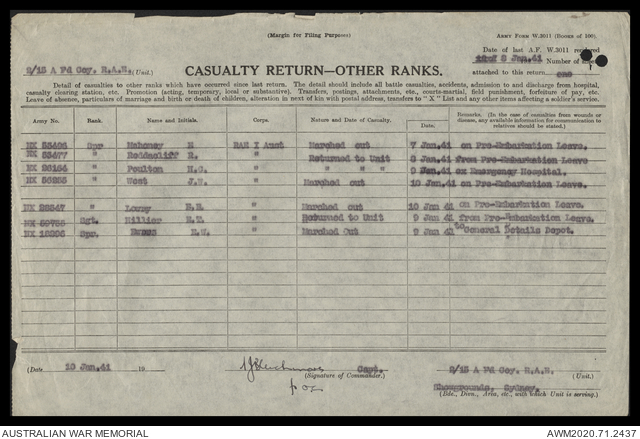 (Margin for Filing Purposes)
ARMY FORM W.3011 (BOOKS of 100).
Date of last A.F. W.3011 rendered
8 Jan.41
Number of
attached to this return one
2/15 A Fd Coy. R.A.E. (Unit.)
CASUALTY RETURN—OTHER RANKS.
Detail of casualties to other ranks which have occurred since last return. The detail should include all battle casualties, accidents, admission to and discharge from hospital,
casualty clearing station, etc. Promotion (acting, temporary, local or substantive). Transfers, postings, attachments, etc., courts-martial, field punishment, forfeiture of pay, etc.
Leave of absence, particulars of marriage and birth or death of children, alteration in next of kin with postal address, transfers to "X" List and any other items affecting a soldier's service.
Army No. Rank. Name and Initials. Corps. Nature and Date of Casualty. Date. Remarks. (In the case of casualties from wounds or disease, any available information for communication to relatives should be stated.)
Spr Mahoney RAE Marched out 7 Jan.41 on Pre-Embarkation Leave.
" R. " Returned to Unit 8 Jan.41 from Pre-Embarkation Leave
" Poulton " " " " 9 Jan.41 ex Emergency Hospital.
" West J.W. " Marched out 10 Jan.41 on Pre-Embarkation Leave.
" " Marched out 10 Jan 41 on Pre-Embarkation Leave.
Sgt. Hillier " Returned to Unit 9 Jan 41 from Pre-Embarkation Leave.
Spr. " Marched Out 9 Jan 41 to General Details Depot.
(Date 10 Jan.41 19
Capt.
(Signature of Commander.)
2/15 A Fd Coy. R.A.E. (Unit.)
Showgrounds, Sydney.
(Bde., Divn., Area, etc., with which Unit is serving.)
AUSTRALIAN WAR MEMORIAL
AWM2020.71.2437